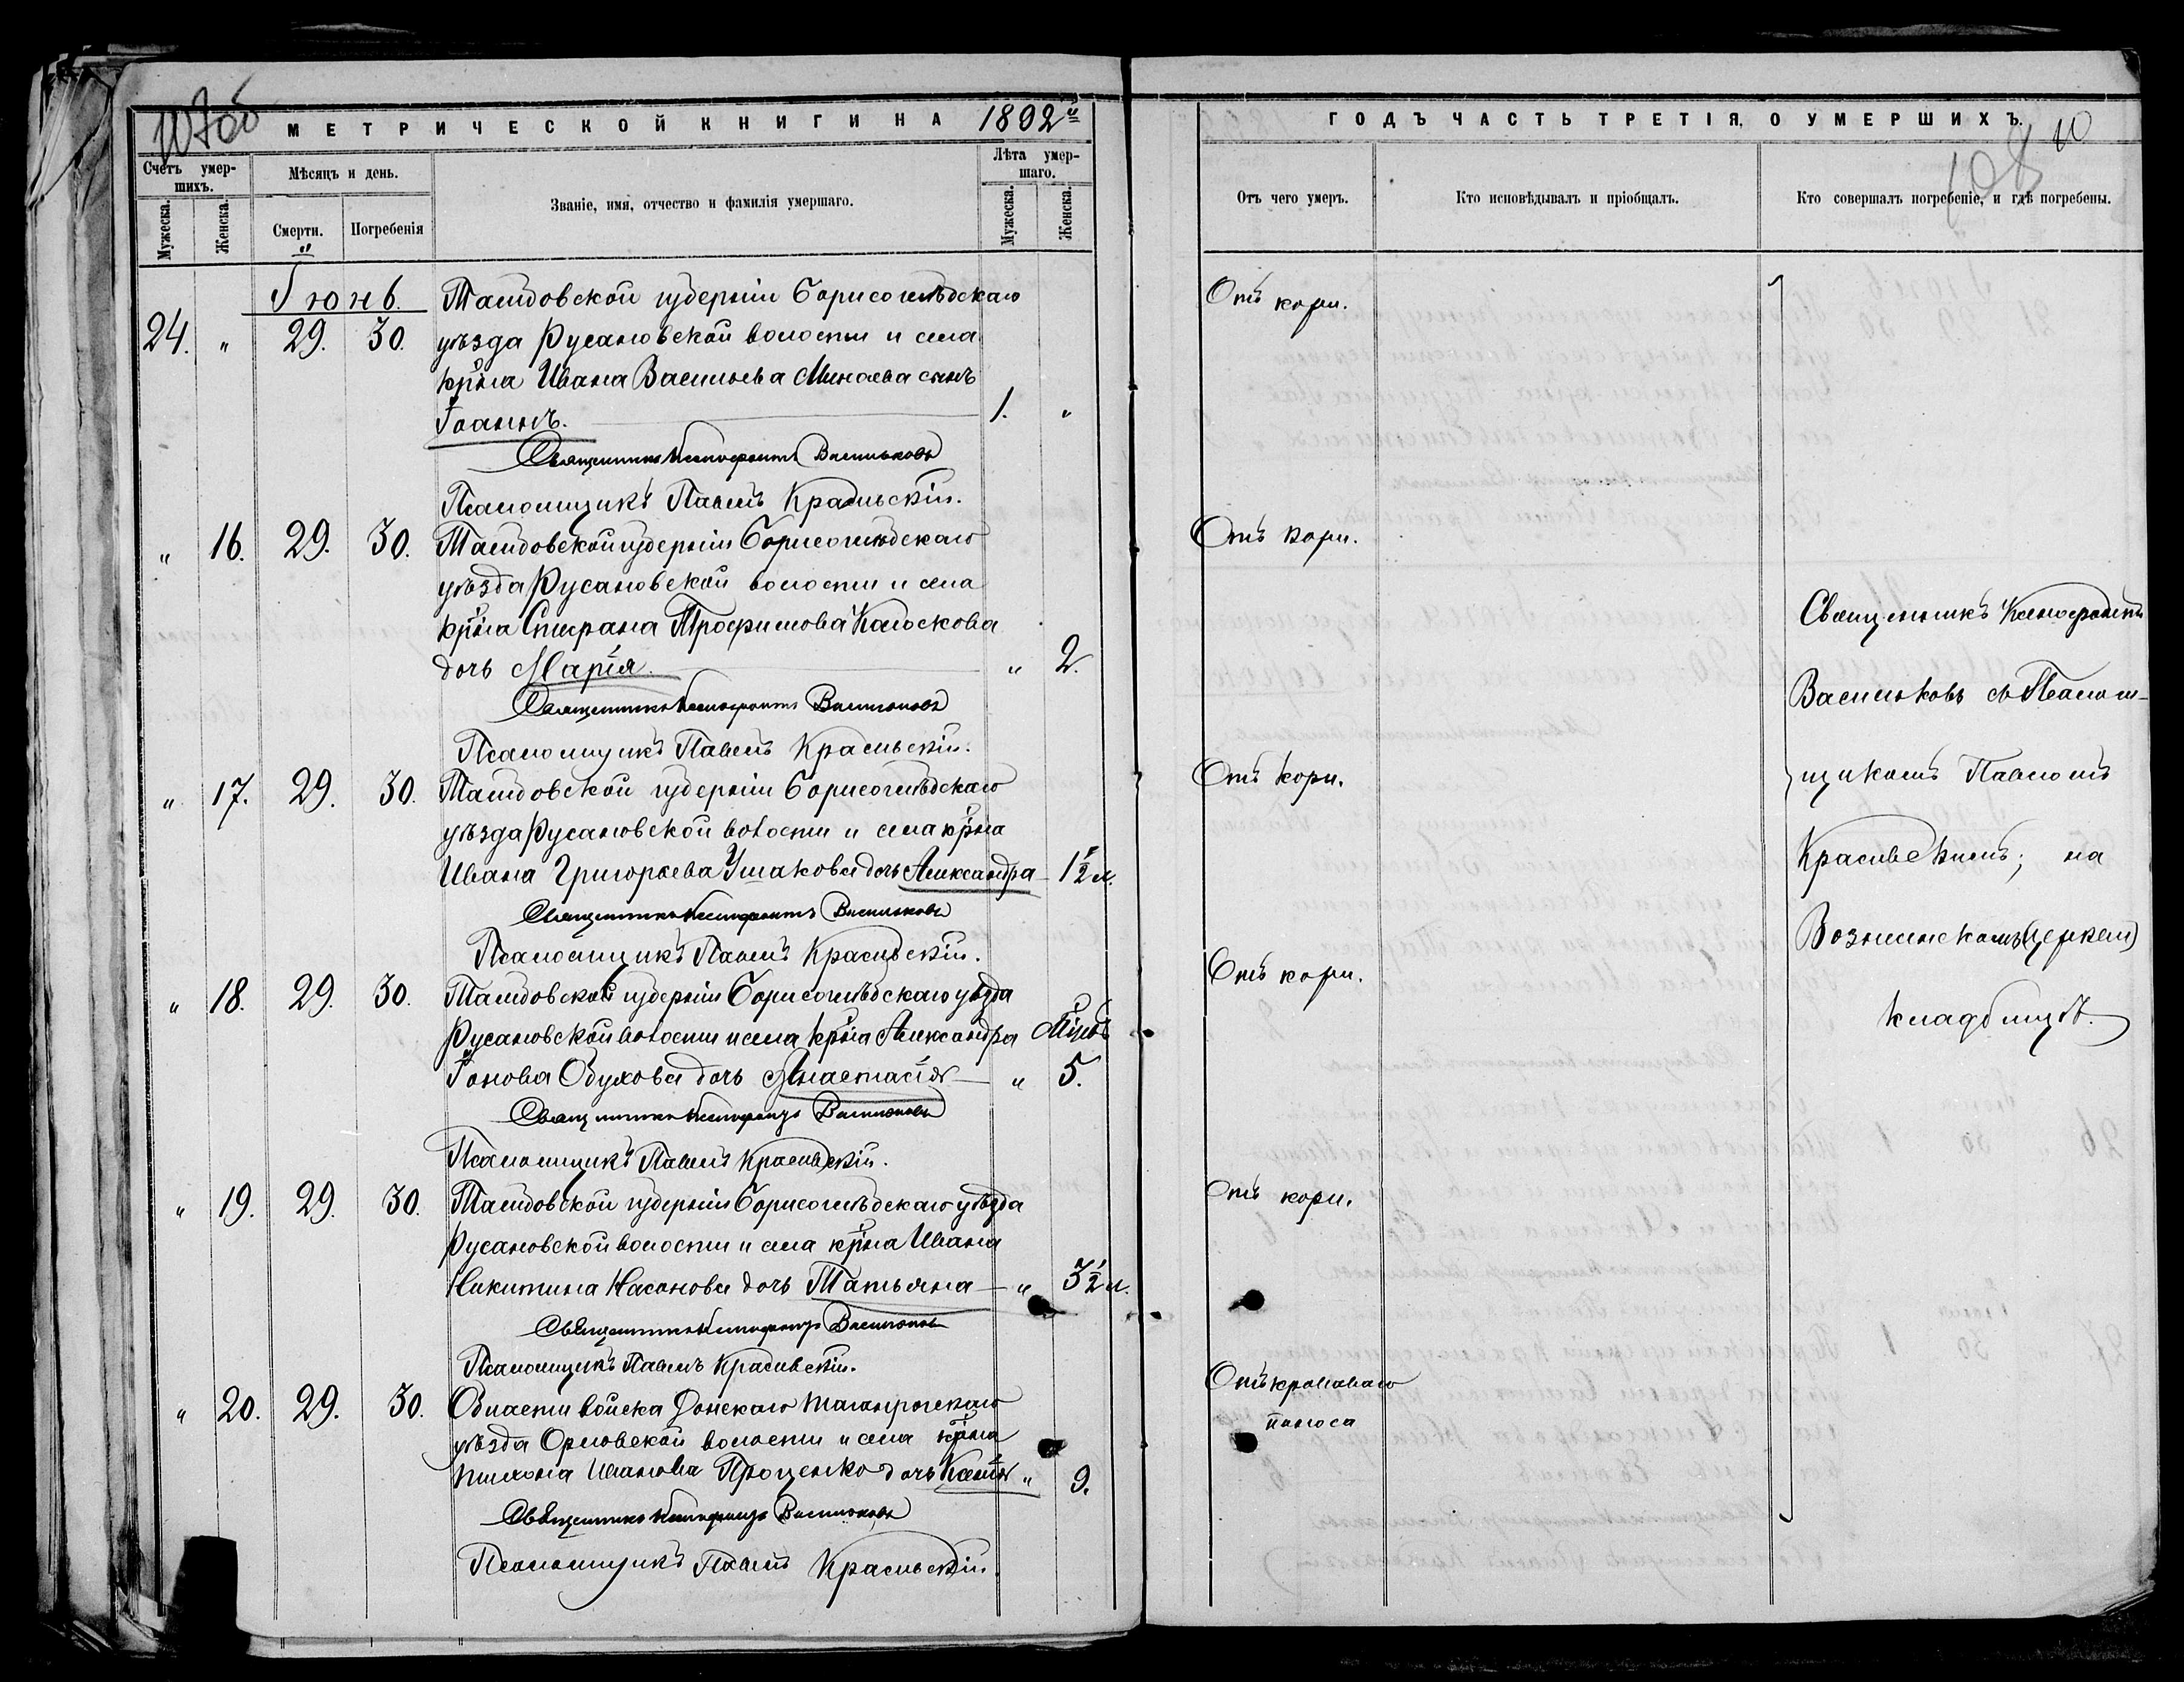 107об
МЕТРИЧЕСКОЙ КНИГИ НА 1892й
ГОДЪ ЧАСТЬ ТРЕТІЯ, О УМЕРШИХЪ.
10
108
Счетъ умершихъ.
Мужеска.
Женска.
Мѣсяцъ и день.
Смерти.
Погребенія
Званіе, имя, отчество и фамилія умершаго.
Лѣта умершаго.
Мужеска.
Женска.
Отъ чего умеръ.
Кто исповѣдывалъ и пріобщалъ.
Кто совершалъ погребеніе, и гдѣ погребены.
Іюнь.
24. " 29. 30. Тамбовской губерніи Борисоглѣбскаго
уѣзда Русановской волости и села
кр͞на Ивана Васильева Минаева сынъ
Іоаннъ. 1. "
Отъ кори.
Священникъ Ксенофонтъ Васильковъ
Псаломщикъ Павелъ Красивскій.
" 16. 29. 30. Тамбовской губерніи Борисоглѣбскаго
уѣзда Русановской волости и села
кр͞на Спирана Трофимова Колоскова
дочь Марія. " 2.
Отъ кори.
Священникъ Ксенофонтъ Васильковъ
Псаломщикъ Павелъ Красивскій.
" 17. 29. 30. Тамбовской губерніи Борисоглѣбскаго
уѣзда Русановской волости и села кр͞на
Ивана Григорьева Ушакова дочь Александра 1½ л.
Отъ кори.
Священникъ Ксенофонтъ Васильковъ
Псаломщикъ Павелъ Красивскій.
" 18. 29. 30. Тамбовской губерніи Борисоглѣбскаго уѣзда
Русановской волости и села кр͞на Александра Мѣсяц.
Іонова Обухова дочь Анастасія " 5.
Отъ кори.
Священникъ Ксенофонтъ Васильковъ
Псаломщикъ Павелъ Красивскій.
" 19. 29. 30. Тамбовской губерніи Борисоглѣбскаго уѣзда
Русановской волости и села кр͞на Ивана
Никитина Насонова дочь Татьяна " 3½ л.
Отъ кори.
Священникъ Ксенофонтъ Васильковъ
Псаломщикъ Павелъ Красивскій.
" 20. 29. 30. Области войска Донскаго Таганрогскаго
уѣзда Орловской волости и села кр͞на
Тихона Иванова Проценко дочь Ксенія " 9.
Отъ кроваваго
поноса
Священникъ Ксенофонтъ Васильковъ
Псаломщикъ Павелъ Красивскій.
Священникъ Ксенофонтъ
Васильковъ съ Псалом-
щикомъ Павломъ
Красивскимъ; на
Вознесенскомъ (церкви)
кладбищѣ.